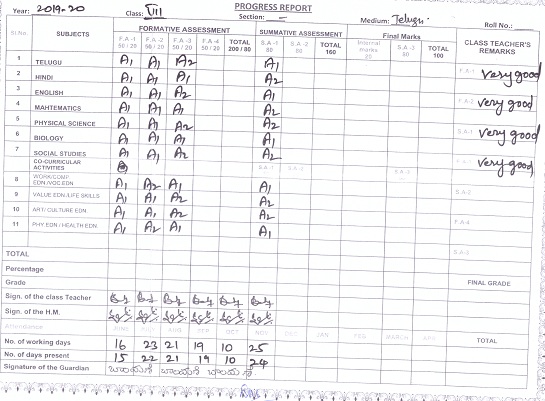 PROGRESS REPORT
Year: 2019-20 Class: VII Section: — Medium: Telugu. Roll No.:
Sl.No. SUBJECTS FORMATIVE ASSESSMENT SUMMATIVE ASSESSMENT Final Marks CLASS TEACHER'S REMARKS
F.A-1 50/20 F.A-2 50/20 F.A-3 50/20 F.A-4 50/20 TOTAL 200/80 S.A-1 80 S.A-2 80 TOTAL 160 Internal marks 20 S.A-3 80 TOTAL 100
1 TELUGU A1 A1 A2 A1 F.A-1 Very good
2 HINDI A1 A1 A1 A2
3 ENGLISH A1 A1 A2 A1 F.A-2 Very good
4 MAHTEMATICS A1 A1 A1 A2
5 PHYSICAL SCIENCE A1 A1 A2 A2 S.A-1 Very good
6 BIOLOGY A1 A1 A1 A1
7 SOCIAL STUDIES A1 A1 A2 A2 Very good
CO-CURRICULAR ACTIVITIES S.A-1 S.A-2 S.A-3
8 WORK/COMP EDN./VOC.EDN A1 A2 A1 A1 S.A-2
9 VALUE EDN./LIFE SKILLS A1 A1 A2 A2
10 ART/ CULTURE EDN. A1 A1 A2 A2 F.A-4
11 PHY.EDN / HEALTH EDN. A1 A2 A1 A1
TOTAL S.A-3
Percentage
Grade FINAL GRADE
Sign. of the class Teacher
Sign. of the H.M.
Attendance JUNE JULY AUG SEP OCT NOV DEC JAN FEB MARCH APR TOTAL
No. of working days 16 23 21 19 10 25
No. of days present 15 22 21 19 10 24
Signature of the Guardian